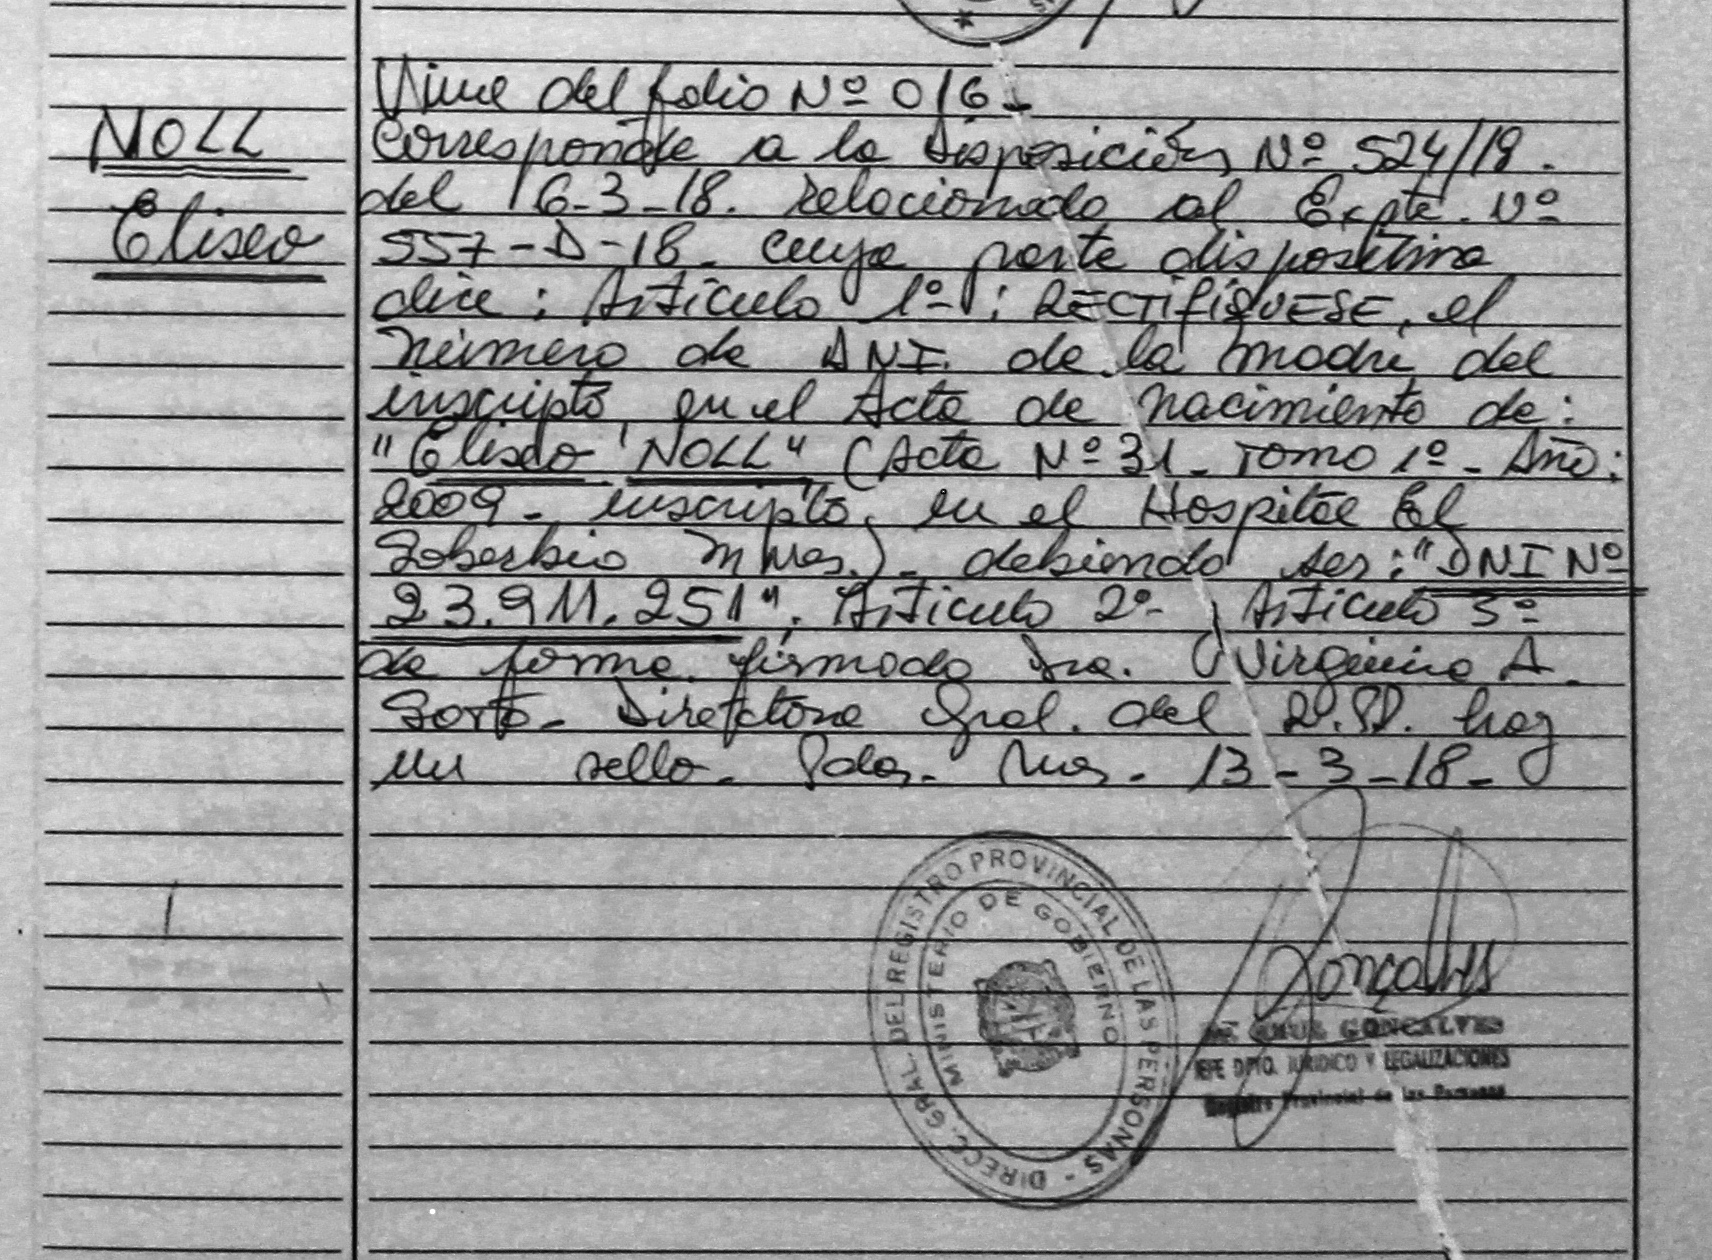 Viene del folio Nº 016-
NOLL
Eliseo
Corresponde a la Disposición Nº 524/18.
del 6-3-18. relacionado al Expte. Nº
557-D-18. cuya parte dispositiva
dice: Artículo 1º: RECTIFIQUESE, el
número de DNI. de la madre del
inscripto en el Acta de nacimiento de:
"Eliseo NOLL" (Acta Nº 31. Tomo 1º - Año:
2009 - inscripto, en el Hospital El
Soberbio Mnes.). debiendo ser: "DNI Nº
23.911.251". Artículo 2º Artículo 3º
de forma. firmado Dra. Virginia A.
Directora Gral. del R.P.P. hay
un sello. Pdas. Mnes. 13-3-18-
DIREC. GRAL. DEL REGISTRO PROVINCIAL DE LAS PERSONAS -
MINISTERIO DE GOBIERNO
Gonçalves
GONCALVES
JEFE DPTO. JURIDICO Y LEGALIZACIONES
Registro Provincial de las Personas